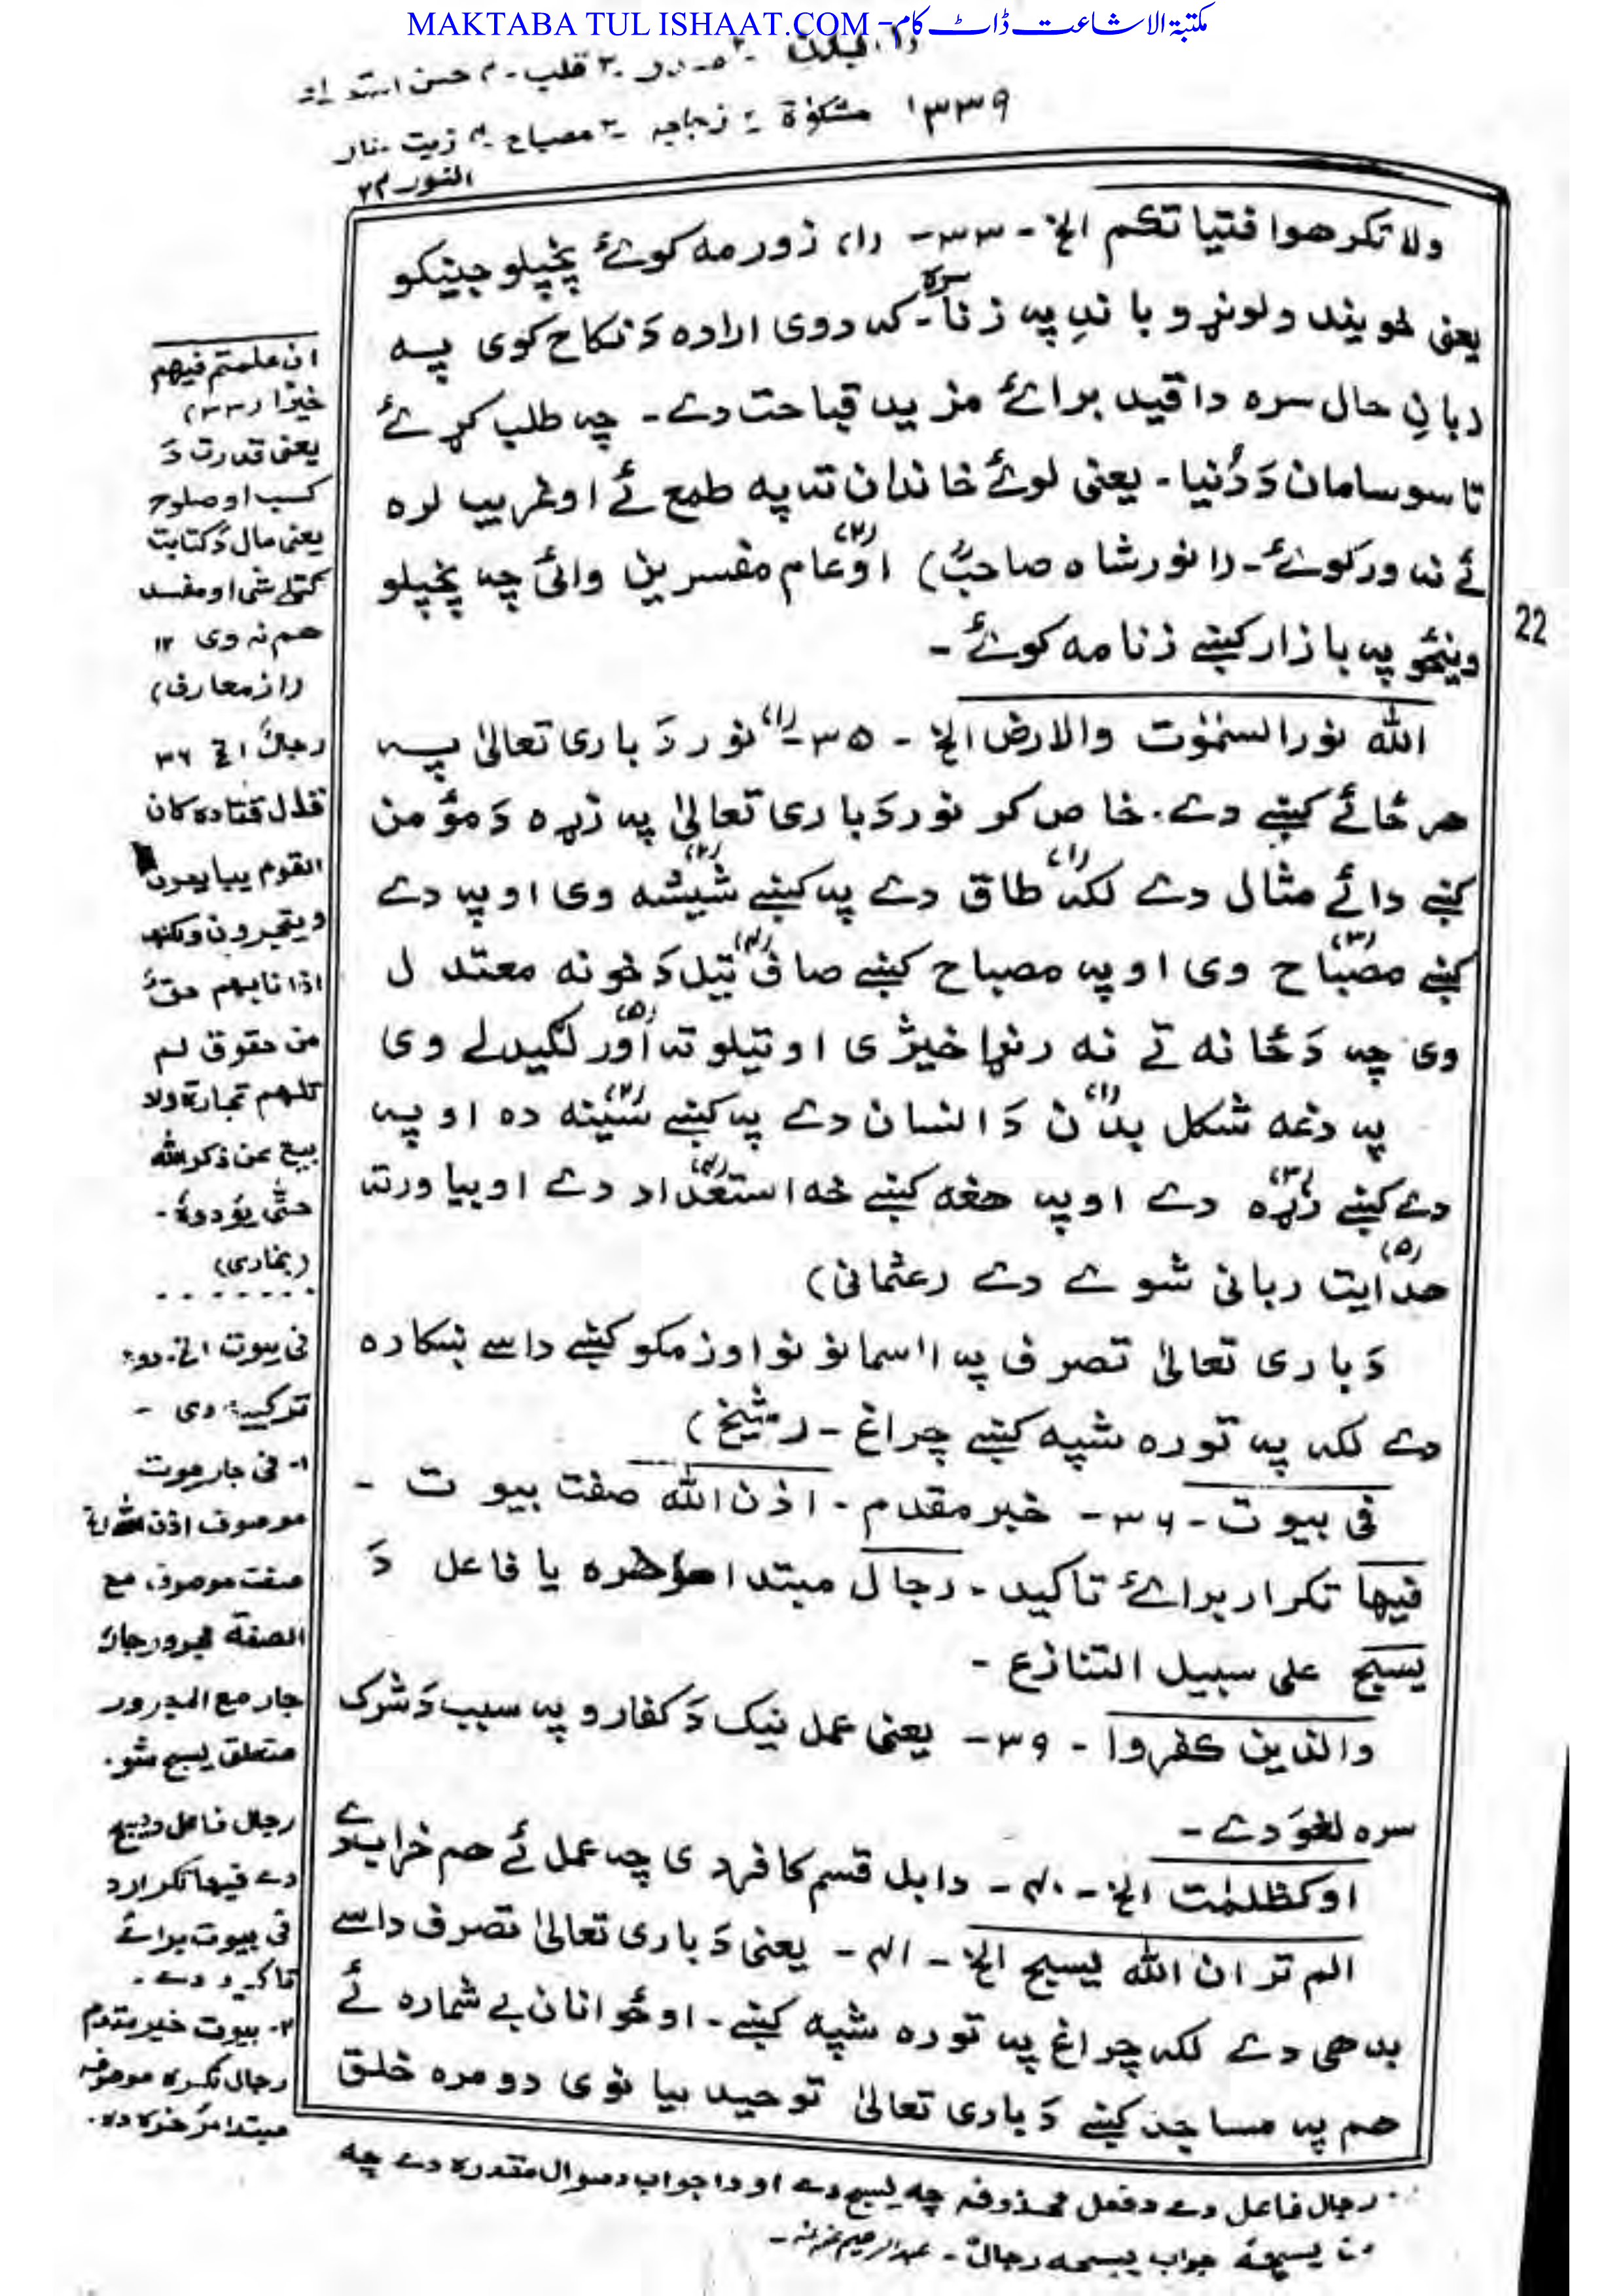 MAKTABA TUL ISHAAT.COM -مکتبۃ الاشاعت ڈاٹ کام
۱۔ بدن ۲۔ صدر ۳۔ قلب ۴۔ حسن استعداد
۱۳۳۹ مشکوٰة ۲۔ زجاجہ ۳۔ مصباح ۴۔ زیت ۔ نار
النور ۲۴
ولا تکرھوا فتیاتکم الخ - ۳۳ - (۱) زور مہ کوئے پخپلو جینکو
یعنی خویندو لونړو باندِ پہ زنا سرہ۔ کہ دوی ارادہ دَ نکاح کوی پہ
زبانِ حال سرہ دا قید برائے مزید قباحت دے۔ چہ طلب کړئے
تاسو سامان دَ دُنیا۔ یعنی لوئے خاندان تہ پہ طمع ئے او غریب لرہ
ئے نہ ورکوئے۔ (انور شاہ صاحبؒ) (۲) او عام مفسرین وائی چہ پخپلو
وینځو پہ بازار کښے زنا مہ کوئے۔
اللہ نور السمٰوٰت والارض الخ - ۳۵ - (۱) نور دَ باری تعالیٰ پہ
ھر ځائے کښے دے۔ خاص کر نور دَ باری تعالیٰ پہ زړہ دَ مؤمن
کښے دائے مثال دے لکہ (۱) طاق دے پہ کښے (۲) شیشہ وی او پہ دے
کښے (۳) مصباح وی او پہ مصباح کښے صاف (۴) تیل دَ خونہ معتدل
وی چہ دَ ځانہ تے نہ رنړا خیژی او تیلو تہ (۵) اور لګیدلے وی
پہ دغہ شکل (۱) بدن دَ انسان دے پہ کښے (۲) سینہ دہ او پہ
دے کښے (۳) زړہ دے او پہ ھغہ کښے خہ (۴) استعداد دے او بیا ورتہ
(۵) ھدایت ربانی شوے دے (عثمانی)
دَ باری تعالیٰ تصرف پہ اسمانونو او زمکو کښے داسے ښکارہ
دے لکہ پہ تورہ شپہ کښے چراغ - (شیخؒ)
فی بیوت - ۳۶ - خبر مقدم - اذن اللہ صفت بیوت -
فیھا تکرار برائے تاکید - رجال مبتدا مؤخرہ یا فاعل دَ
یسبح علی سبیل التنازع -
والذین کفروا - ۳۹ - یعنی عمل نیک دَ کفارو پہ سبب دَ شرک
سرہ لغوَ دے -
او کظلمٰت الخ - ۴۰ - دا بل قسم کافر دی چہ عمل ئے ھم خراب دے
الم تر ان اللہ یسبح الخ - ۴۱ - یعنی دَ باری تعالیٰ تصرف داسے
بدھی دے لکہ چراغ پہ تورہ شپہ کښے۔ او ځوانان بے شمارہ ئے
ھم پہ مساجد کښے دَ باری تعالیٰ توحید بیانوی دومرہ خلق
22
ان علمتم فیھم
خیرًا (۳۳)
یعنی قدرت دَ
کسب او صلوح
یعنی مال دَ کتابت
ګټلے شی او مفسد
ھم نہ وی ۱۲
(از معارف)
رجالٌ الخ ۳۷
قال قتادہ کان
القوم یتبایعون
ویتجرون ولکنھم
اذا نابھم حقٌ
من حقوق لم
تلھھم تجارة ولا
بیع عن ذکر اللہ
حتّٰی یؤدوہ -
(بخاری)
فی بیوت الخ دوہ
ترکیبہ دی -
۱- فی جار بیوت
موصوف اذن اللہ الخ
صفت موصوف مع
الصفة مجرور جار
جار مع المجرور
متعلق یسبح شو.
رجال فاعل دیسبح
دے فیھا تکرار د
فی بیوت برائے
تاکید دے -
۲- بیوت خبر مقدم
رجال نکرہ موصوفہ
مبتدا مؤخرہ دہ.
رجال فاعل دے دفعل محذوف چہ یسبح دے او دا جواب دسوال مقدرہ دے چہ
من یسبحہ جواب یسبحہ رجالٌ -